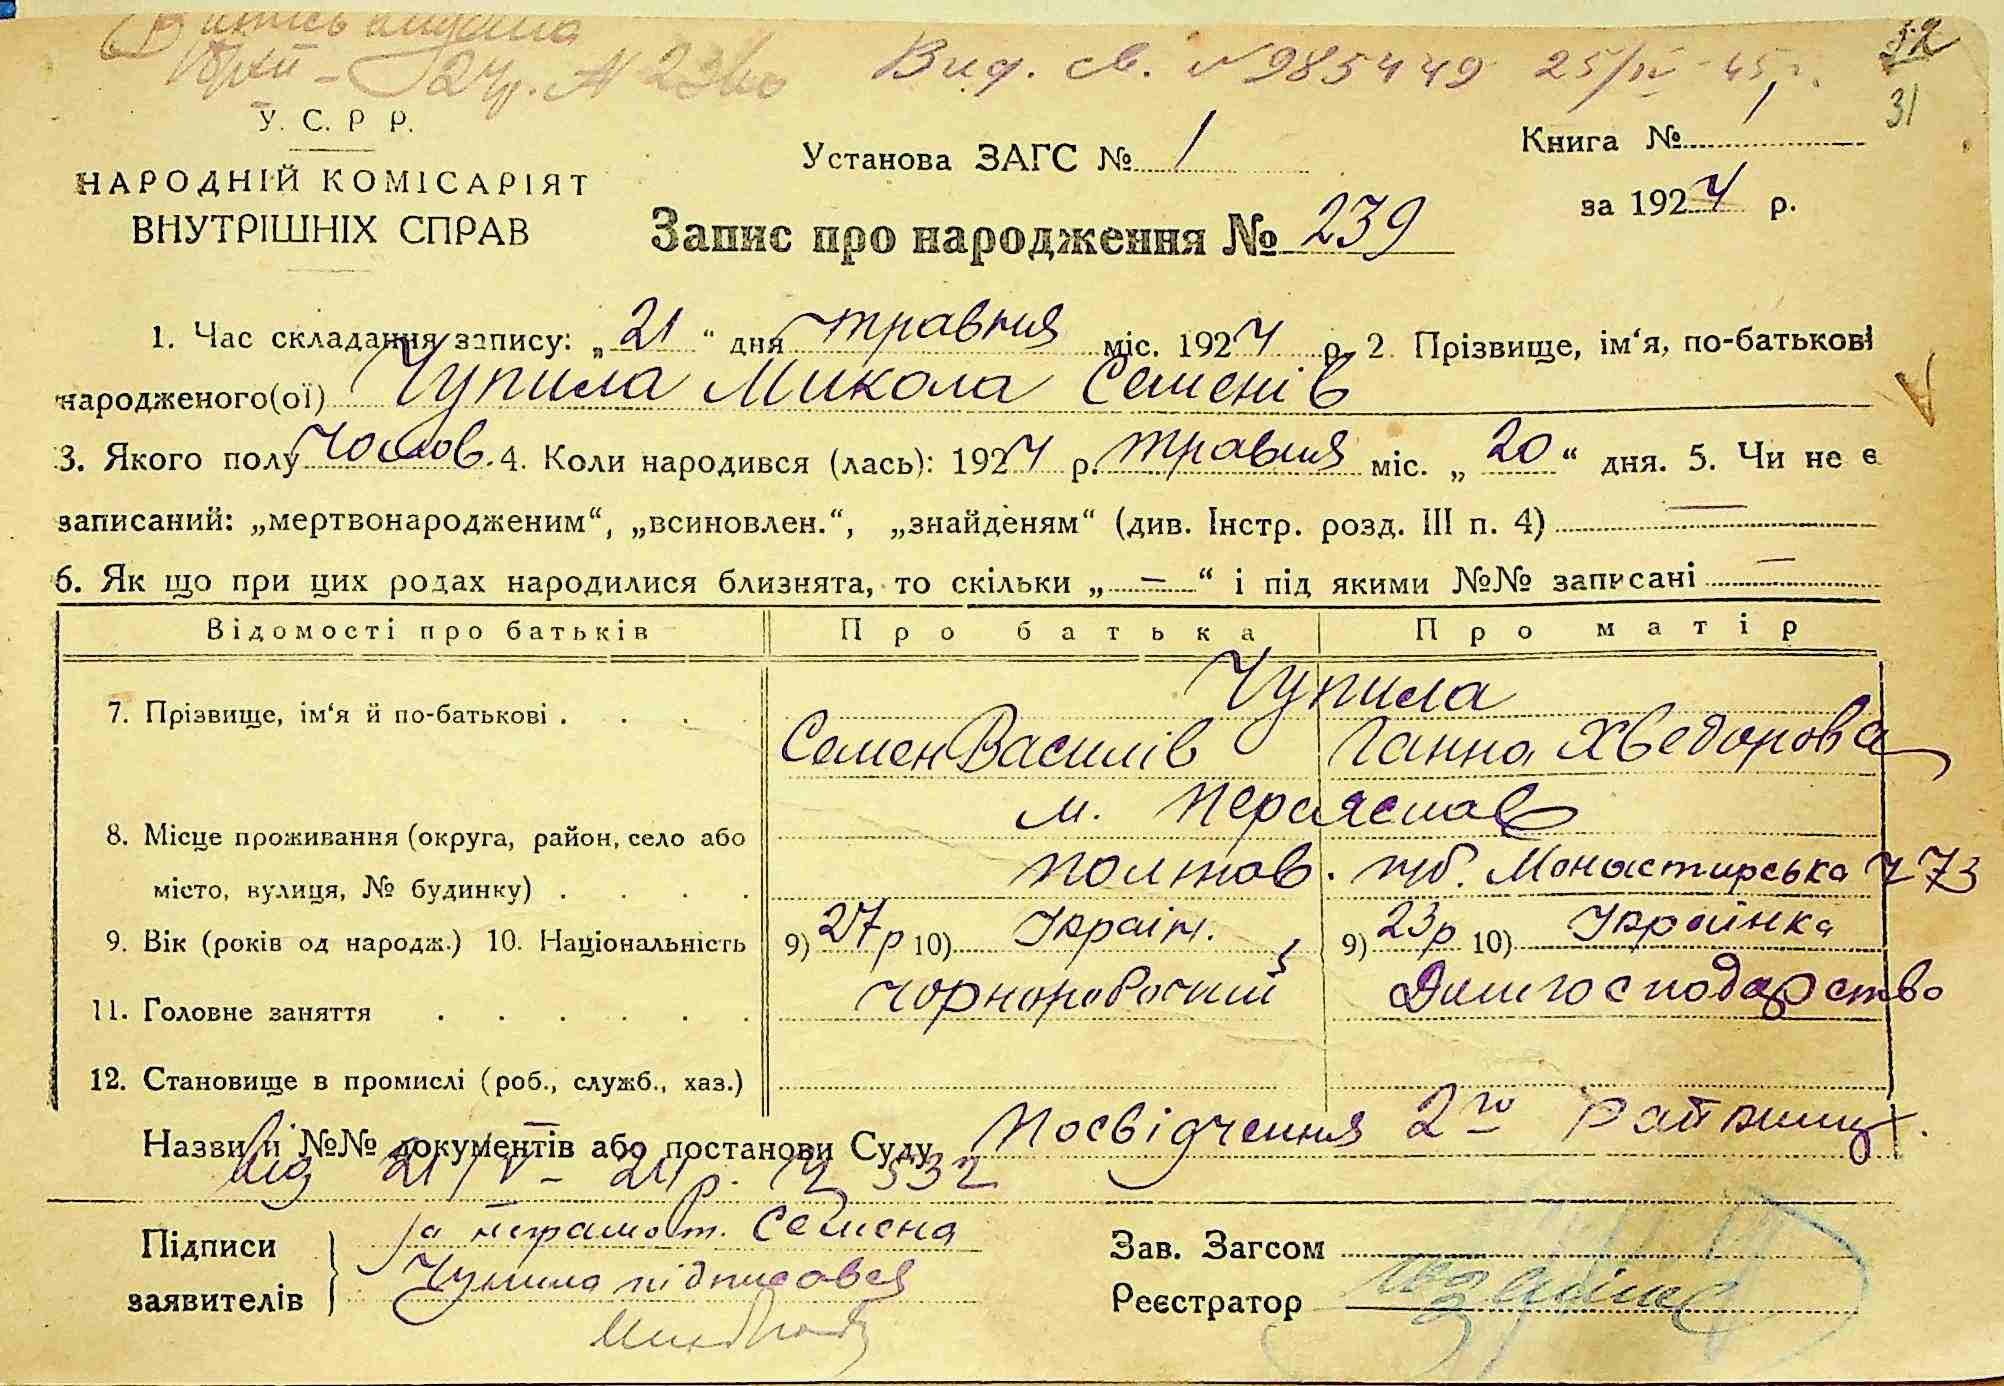 Вид. св. № 985449 25/IV-45 р.
32
31
У. С. Р Р.
НАРОДНІЙ КОМІСАРІЯТ
ВНУТРІШНІХ СПРАВ
Установа ЗАГС № 1
Книга № 1
за 1924 р.
Запис про народження № 239
1. Час складання запису: „21“ дня травня міс. 1924 р. 2. Прізвище, ім‘я, по-батькові
народженого(ої) Чупила Микола Семенів
3. Якого полу чолов. 4. Коли народився (лась): 1924 р. травня міс. „20“ дня. 5. Чи не є
записаний: „мертвонародженим“, „всиновлен.“, „знайденям“ (див. Інстр. розд. III п. 4) —
6. Як що при цих родах народилися близнята, то скільки „—“ і під якими №№ записані —
Відомості про батьків Про батька Про матір
7. Прізвище, ім‘я й по-батькові . . . . Чупила
Семен Василів Ганна Хведорова
м. Переяслав
8. Місце проживання (округа, район, село або
місто, вулиця, № будинку) . . . . Полтов. губ. Монастирська 773
9. Вік (років од народж.) 10. Національність 9) 27 р 10) Україн. 9) 23 р 10) Українка
11. Головне заняття . . . . . . чорноробочий Домгосподарство
12. Становище в промислі (роб., служб., хаз.)
Назви й №№ документів або постанови Суду Посвідчення 2го
від 21/V – 24 р. № 532
Підписи за неграмот. Семена
заявителів Чупила підписався
Зав. Загсом
Реєстратор